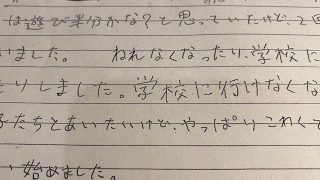 は遊び半分かな？と思っていたけど、2回
いました。 ねれなくなったり、学校に
たりしました。学校に行けなくな
子たちとあいたいけど、やっぱりこわくて
い始めました。